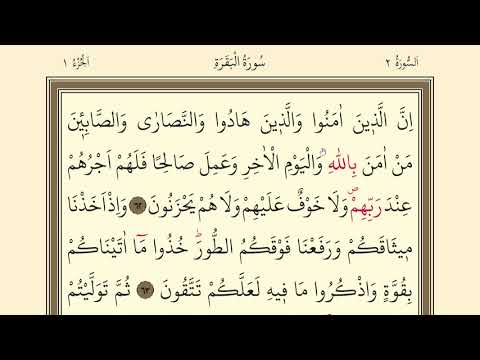 اَلسُّورَةُ ٢ سُورَةُ الْبَقَرَةِ اَلْجُزْءُ ١
اِنَّ الَّذ۪ينَ اٰمَنُوا وَالَّذ۪ينَ هَادُوا وَالنَّصَارٰى وَالصَّابِـ۪ٔينَ
مَنْ اٰمَنَ بِاللّٰهِ وَالْيَوْمِ الْاٰخِرِ وَعَمِلَ صَالِحًا فَلَهُمْ اَجْرُهُمْ
عِنْدَ رَبِّهِمْۖ وَلَا خَوْفٌ عَلَيْهِمْ وَلَا هُمْ يَحْزَنُونَ ﴿٦٢﴾ وَاِذْ اَخَذْنَا
م۪يثَاقَكُمْ وَرَفَعْنَا فَوْقَكُمُ الطُّورَۜ خُذُوا مَٓا اٰتَيْنَاكُمْ
بِقُوَّةٍ وَاذْكُرُوا مَا ف۪يهِ لَعَلَّكُمْ تَتَّقُونَ ﴿٦٣﴾ ثُمَّ تَوَلَّيْتُمْ